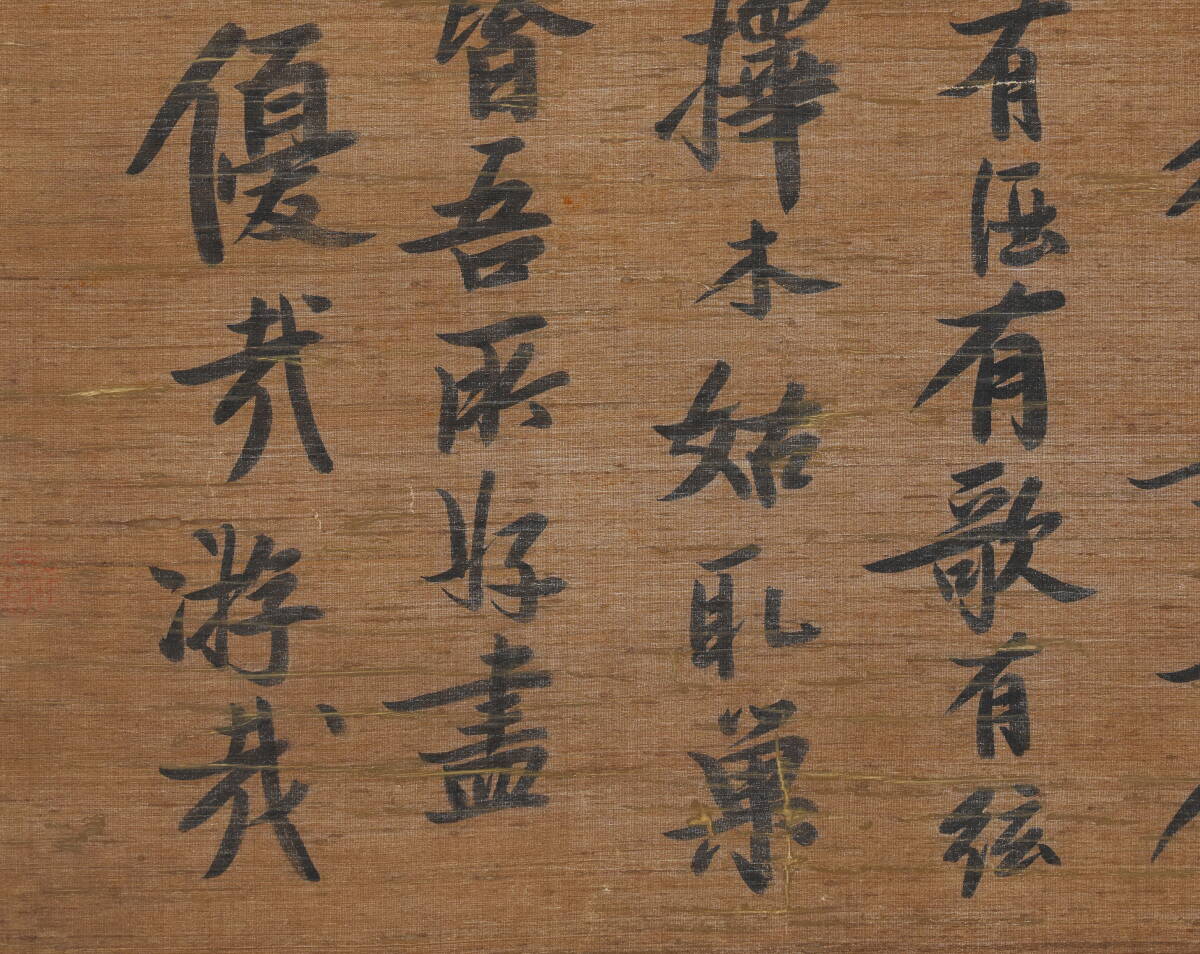 有酒有歌有絃
擇木姑取巢
皆吾所好盡
優哉游哉